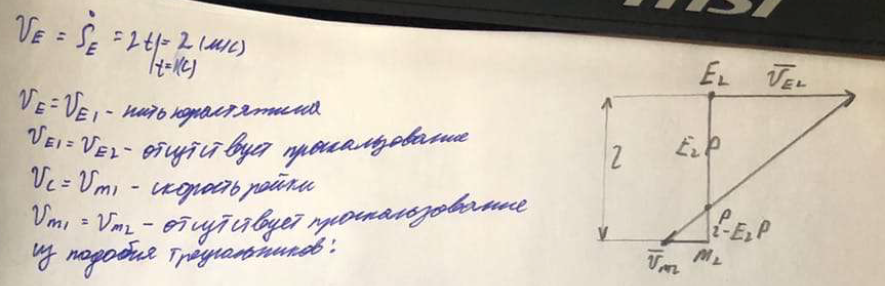 msi
V_E = Ṡ_E = 2t|_{t=1(c)} = 2 (м/c)
V_E = V_{E1} - нить нерастяжима
V_{E1} = V_{E2} - отсутствует проскальзование
V_C = V_{m1} - скорость рейки
V_{m1} = V_{m2} - отсутствует проскальзование
из подобия треугольников:
E_2 V̄_{E2}
2 E_2P
P
2-E_2P
V̄_{m2} M_2